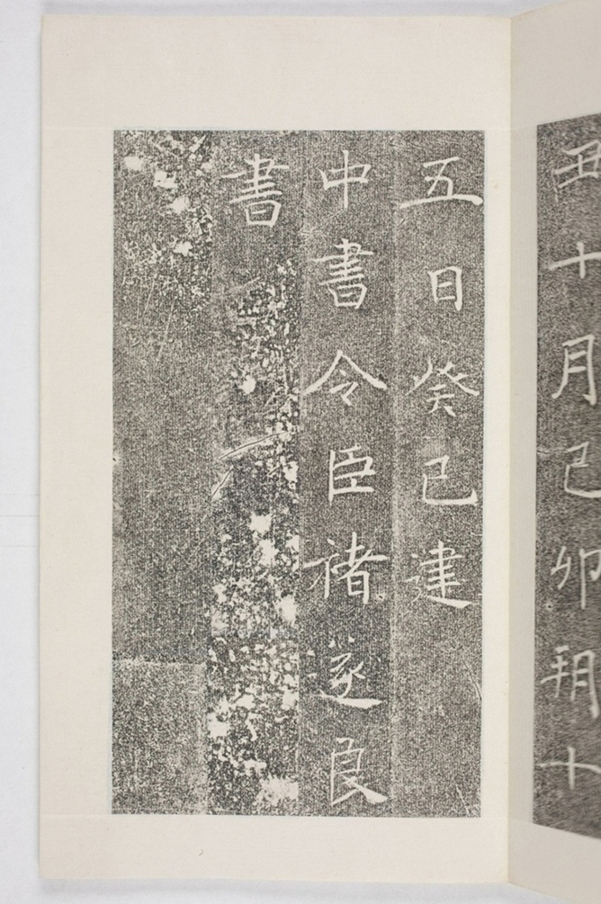 丑十月己卯朔十
五日癸巳建
中書令臣褚遂良
書